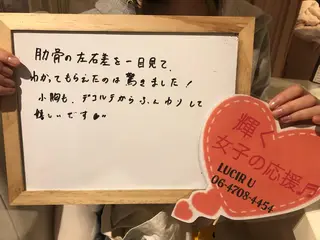 肋骨の左右差を一目見て、
わかってもらえたのは驚きました！
小胸も、デコルテからふんわりして
嬉しいです
輝く
女子の応援
LUCIR U
06-4708-4454